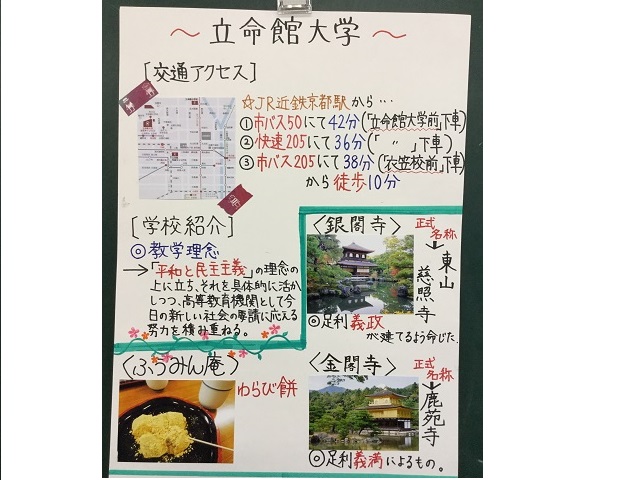 〜立命館大学〜
[交通アクセス]
☆JR近鉄京都駅から…
①市バス50にて42分(「立命館大学前」下車)
②快速205にて36分(「〃」下車)
③市バス205にて38分(「衣笠校前」下車)
から徒歩10分
[学校紹介]
◎教学理念
→「平和と民主主義」の理念の
上に立ち、それを具体的に活か
しつつ、高等教育機関として今
日の新しい社会の要請に応える
努力を積み重ねる。
〈銀閣寺〉
正式名称
東山慈照寺
◎足利義政
が建てるよう命じた。
〈ふうみん庵〉
わらび餅
〈金閣寺〉
正式名称
鹿苑寺
◎足利義満によるもの。